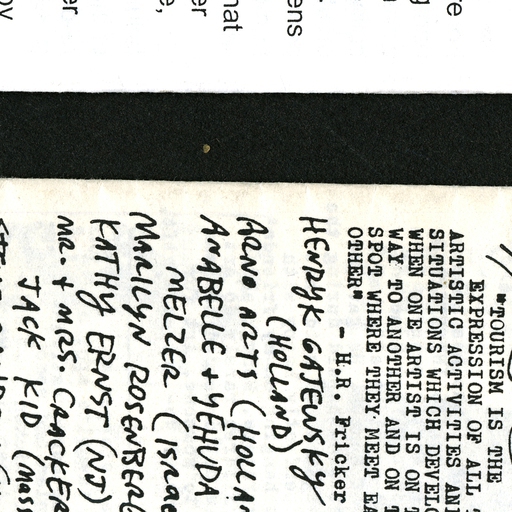 re
g
ens
hat
er
e,
er
ov
"TOURISM IS THE
EXPRESSION OF ALL
ARTISTIC ACTIVITIES AND
SITUATIONS WHICH DEVELO
WHEN ONE ARTIST IS ON T
WAY TO ANOTHER AND ON T
SPOT WHERE THEY MEET EA
OTHER"
- H.R. Fricker
HENRYK GAJEWSKY
(HOLLAND)
ARNO ARTS (HOLLA
ANABELLE + YEHUDA
MELZER (ISRAE
MARILYN ROSENBERG
KATHY ERNST (NJ)
MR. + MRS. CRACKER
JACK KID (MASS